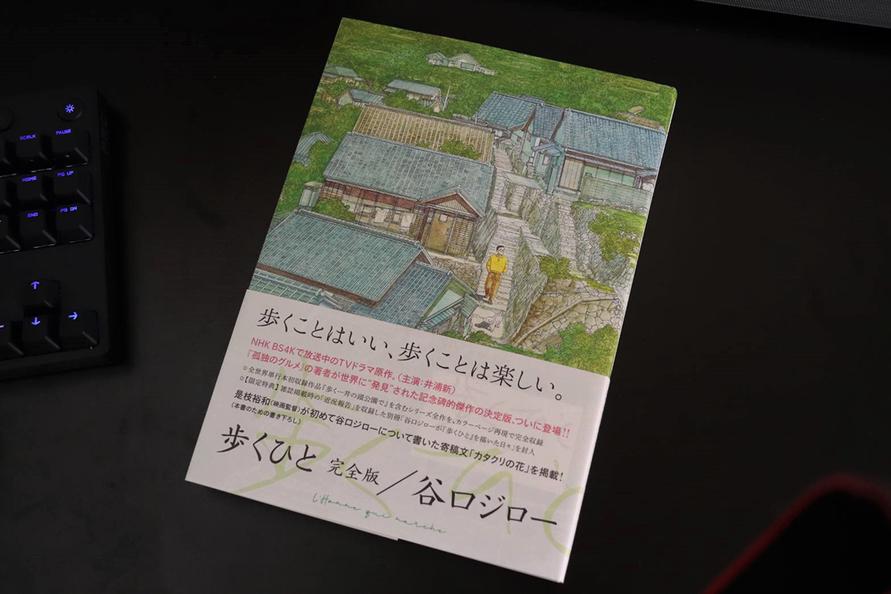 SCRLK PAUSE
HOME PG UP
END PG DN
歩くことはいい、歩くことは楽しい。
NHK BS4Kで放送中のTVドラマ原作。(主演:井浦新)
『孤独のグルメ』の著者が世界に"発見"された記念碑的傑作の決定版、ついに登場!!
○全世界単行本初収録作品『歩く−井の頭公園で』を含むシリーズ全作を、カラーページ再現で完全収録
○【限定特典】雑誌掲載時の「近況報告」を収録した別冊「谷口ジローが『歩くひと』を描いた日々」を封入
是枝裕和(映画監督)が初めて谷口ジローについて書いた寄稿文「カタクリの花」を掲載!
(本書のための書き下ろし)
歩くひと 完全版/谷口ジロー
L'Homme qui marche